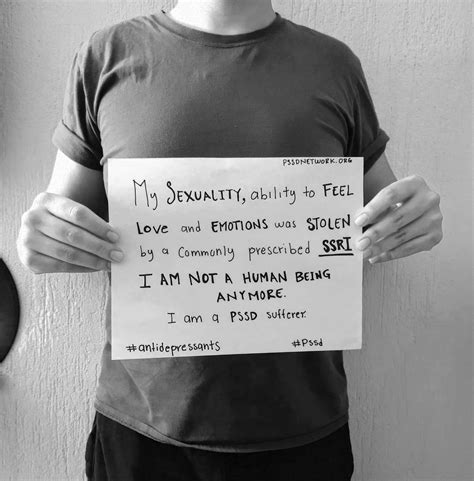 PSSDNETWORK.ORG
My SEXUALITY, ability to FEEL
LOVE and EMOTIONS was STOLEN
by a commonly prescribed SSRI
I AM NOT A HUMAN BEING
ANYMORE.
I am a PSSD sufferer.
#antidepressants #PSSd